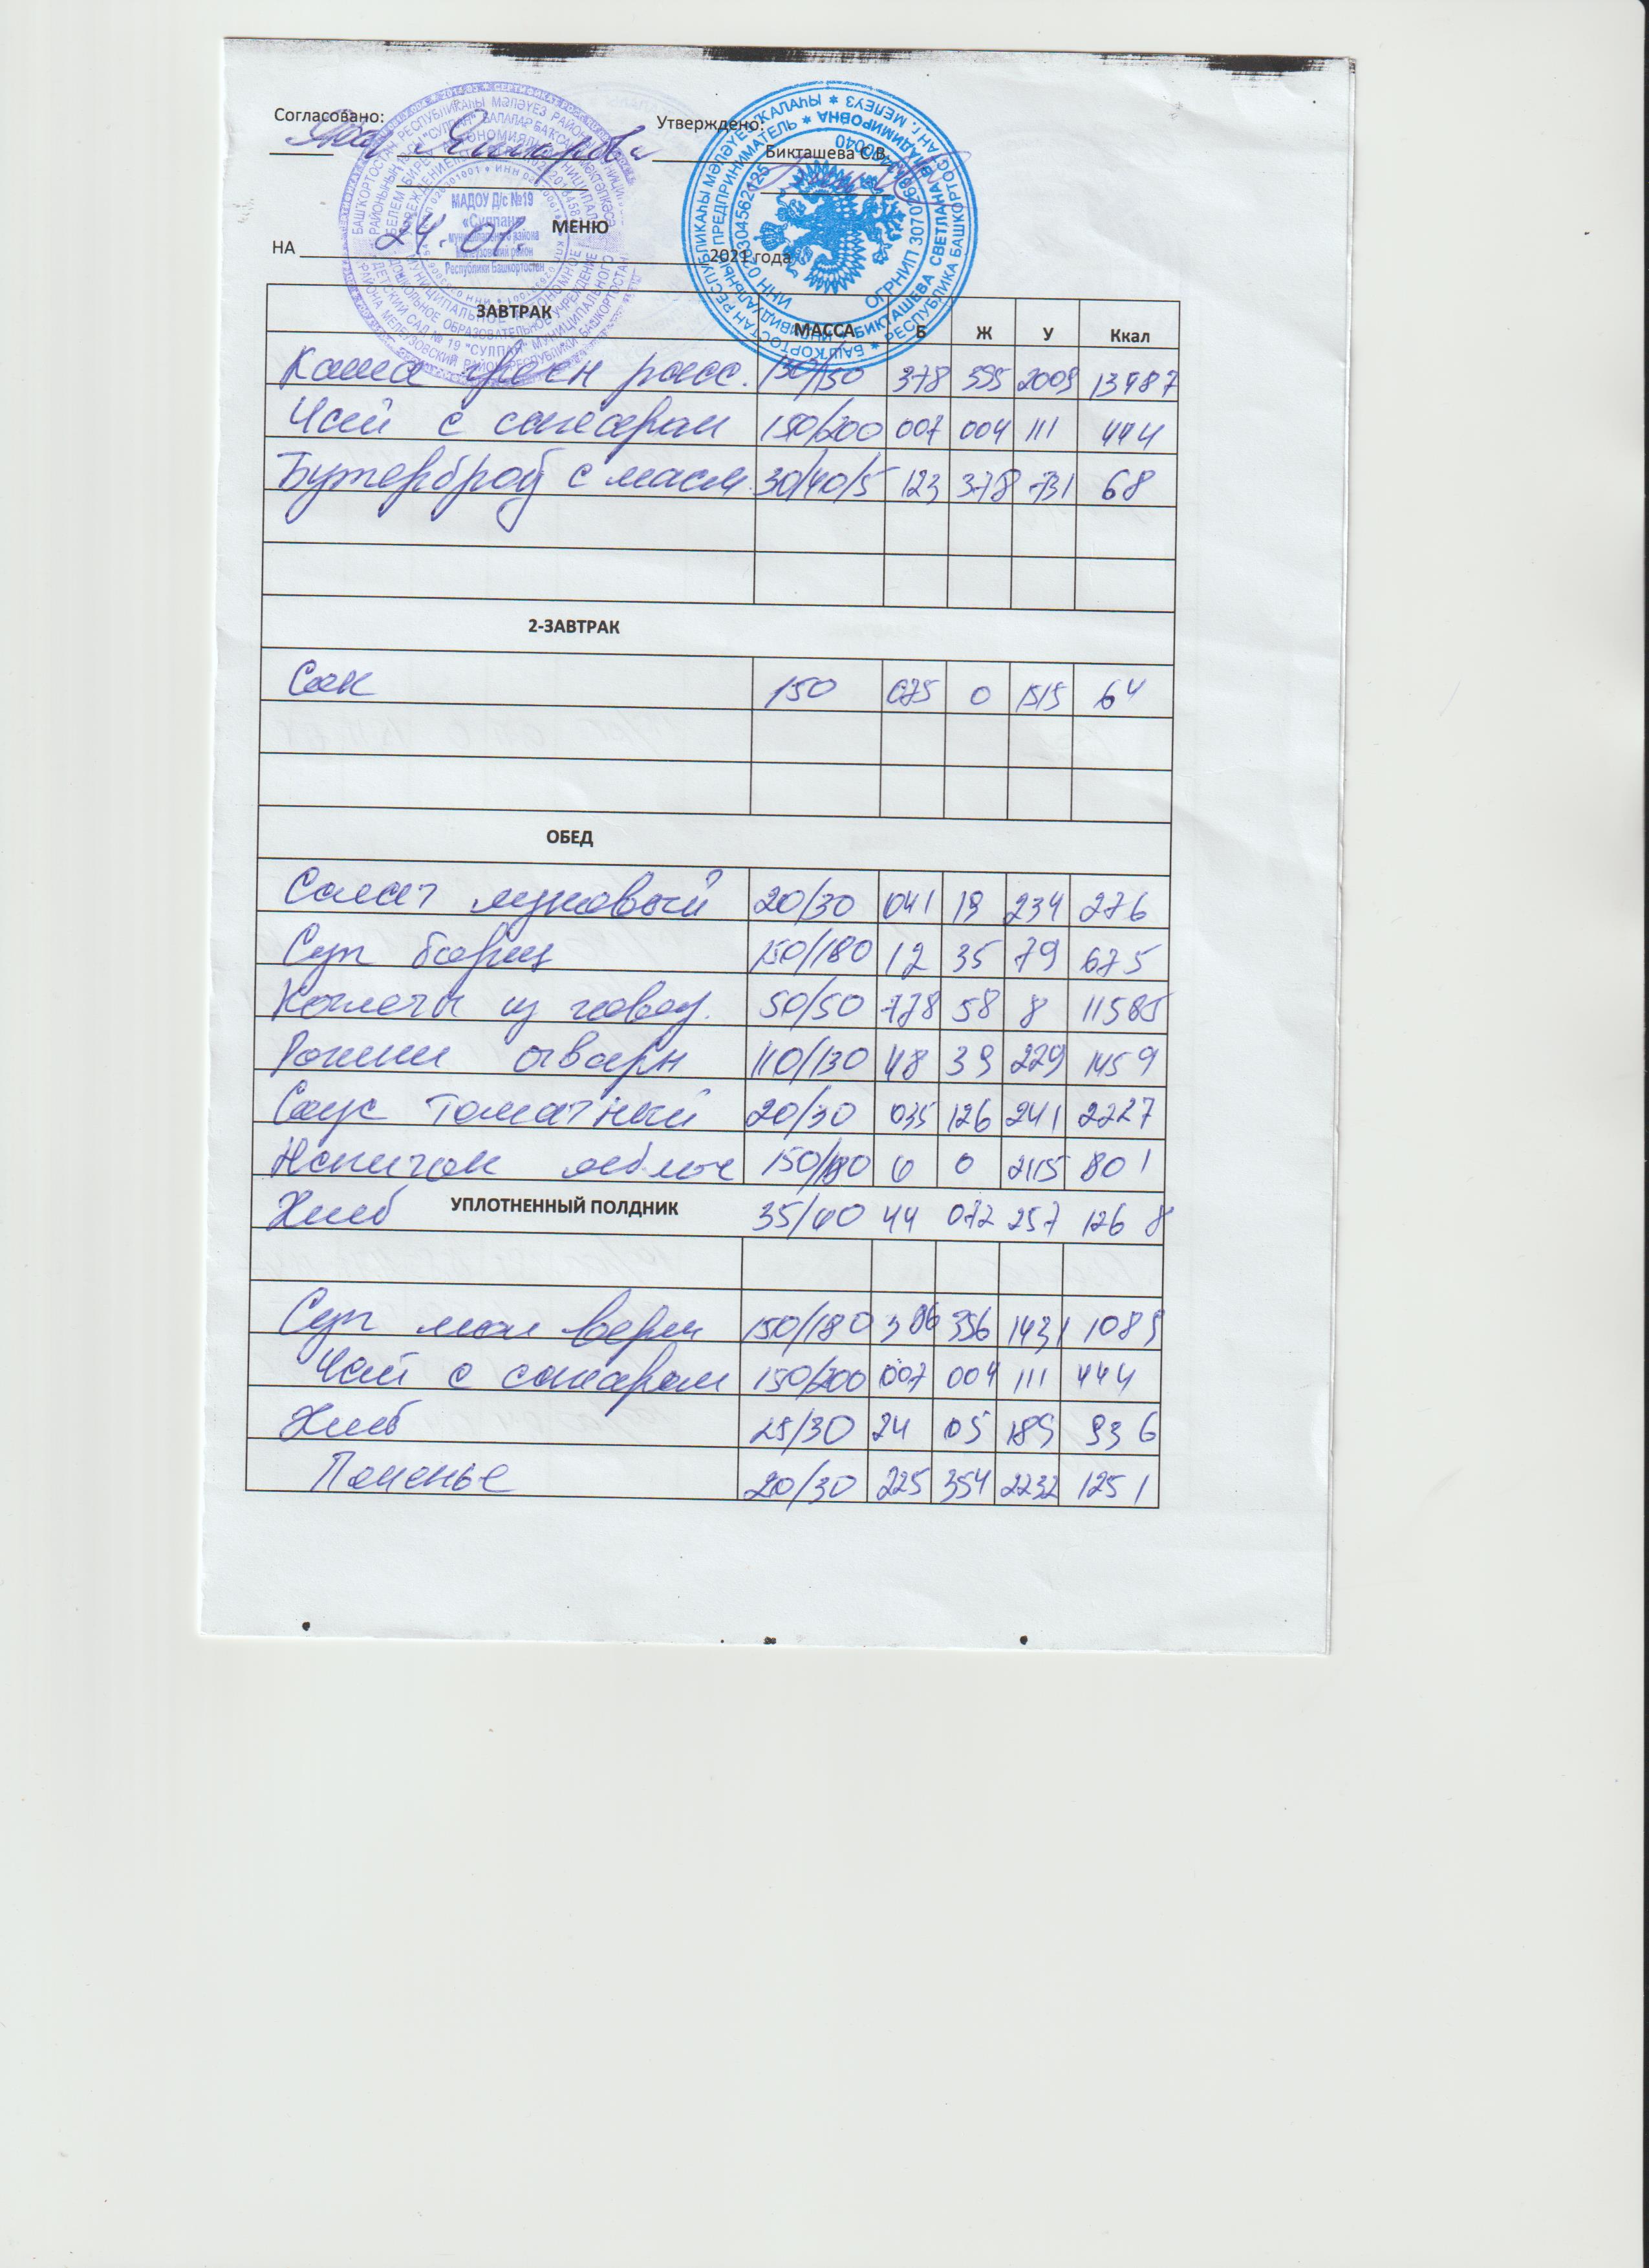 Согласовано:
Утверждено:
Бикташева С.В.
МАДОУ Д/с №19
«Сулпан»
муниципального района
Мелеузовский район
Республики Башкортостан
МЕНЮ
НА 24.01. 2021 года
ЗАВТРАК МАССА Б Ж У Ккал
Каша гречн расс. 130/150 378 395 2009 13787
Чай с сахаром 150/200 007 004 111 444
Бутерброд с масл. 30/40/5 123 378 731 68
2-ЗАВТРАК
Сок 150 075 0 1515 64
ОБЕД
Салат луковый 20/30 041 19 234 276
Суп борщ 150/180 12 35 79 675
Котлеты из говяд. 50/50 778 58 8 11585
Рожки отварн 110/130 48 39 229 1459
Соус томатный 20/30 035 126 241 2227
Напиток яблоч 150/180 0 0 2115 801
Хлеб УПЛОТНЕННЫЙ ПОЛДНИК 35/40 44 072 257 126 8
Суп мол верм 150/180 396 356 1431 1089
Чай с сахаром 150/200 007 004 111 444
Хлеб 25/30 24 05 189 936
Печенье 20/30 225 354 2232 1251